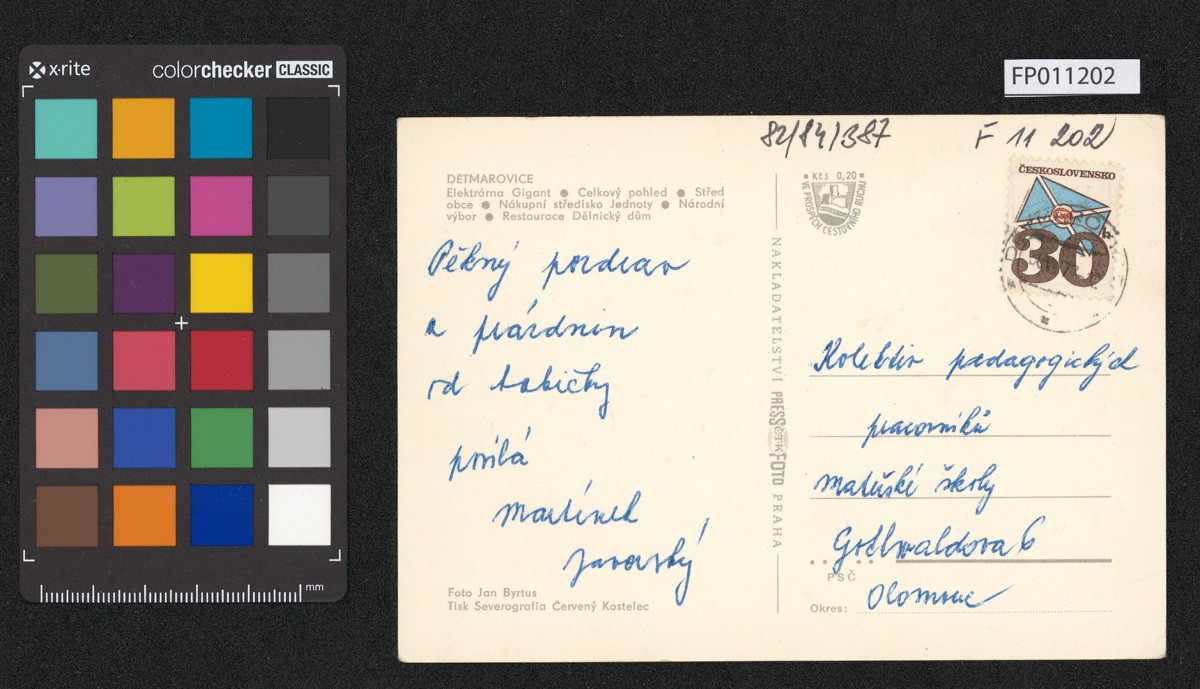 x·rite
colorchecker CLASSIC
mm
FP011202
82/84/387
F 11 202
DĚTMAROVICE
Elektrárna Gigant ● Celkový pohled ● Střed
obce ● Nákupní středisko Jednoty ● Národní
výbor ● Restaurace Dělnický dům
Kčs 0,20
VE PROSPĚCH CESTOVNÍHO RUCHU
ČESKOSLOVENSKO
30
Pěkný pozdrav
z prázdnin
od babičky
posílá
Martínek
Javorský
NAKLADATELSTVÍ PRESSFOTO PRAHA
ČTK
Kolektiv pedagogických
pracovníků
mateřské školy
Gottwaldova 6
PSČ
Okres: Olomouc
Foto Jan Byrtus
Tisk Severografia Červený Kostelec